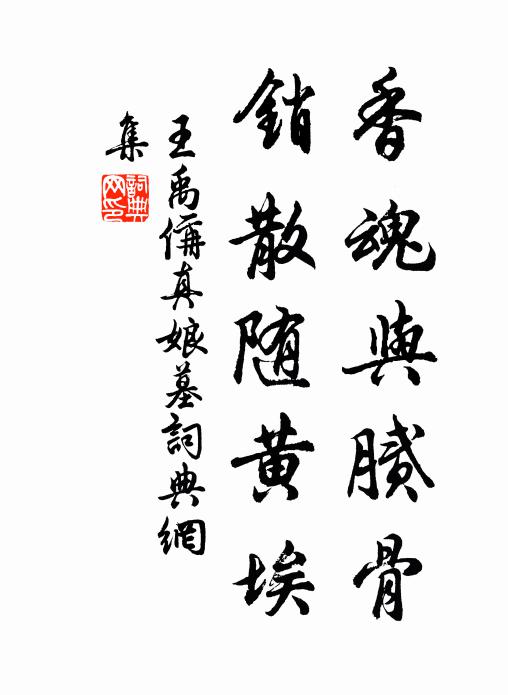 香魂與膩骨
銷散随黄埃
王禹偁真娘墓詞典網
集
詞典
网印